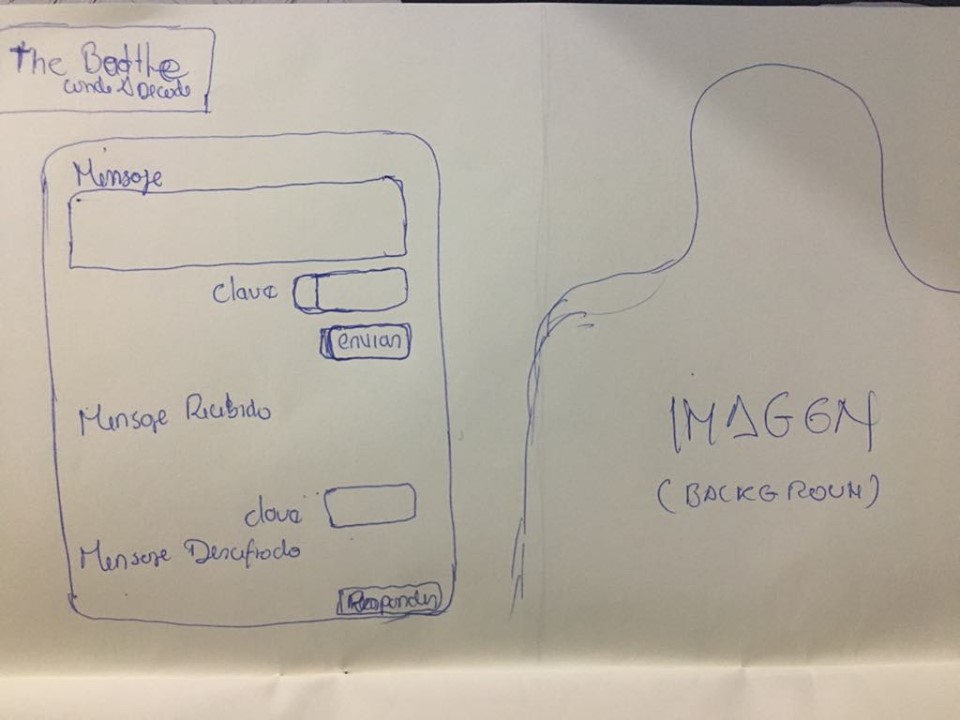 The Beatthe
Conde & Decode
Mensaje
Clave
enviar
Mensaje Recibido
clave
Mensaje Descifrado
Responder
IMAGEN
(BACKGROUN)